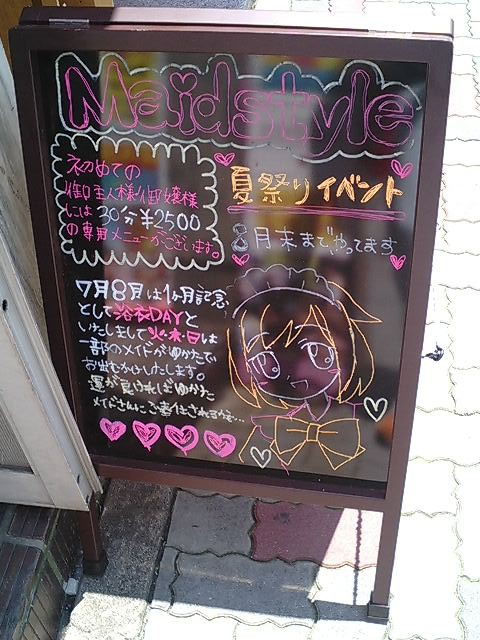 Maidstyle
初めての
御主人様・御嬢様
には30分¥2500
の専用メニューがございます。
夏祭りイベント
8月末までやってます
7月8月は1ヶ月記念
として浴衣DAYと
いたしまして火・木・日は
一部のメイドがゆかたで
お出むかえします。
運が良ければゆかた
メイドさんにご奉仕されるかも…